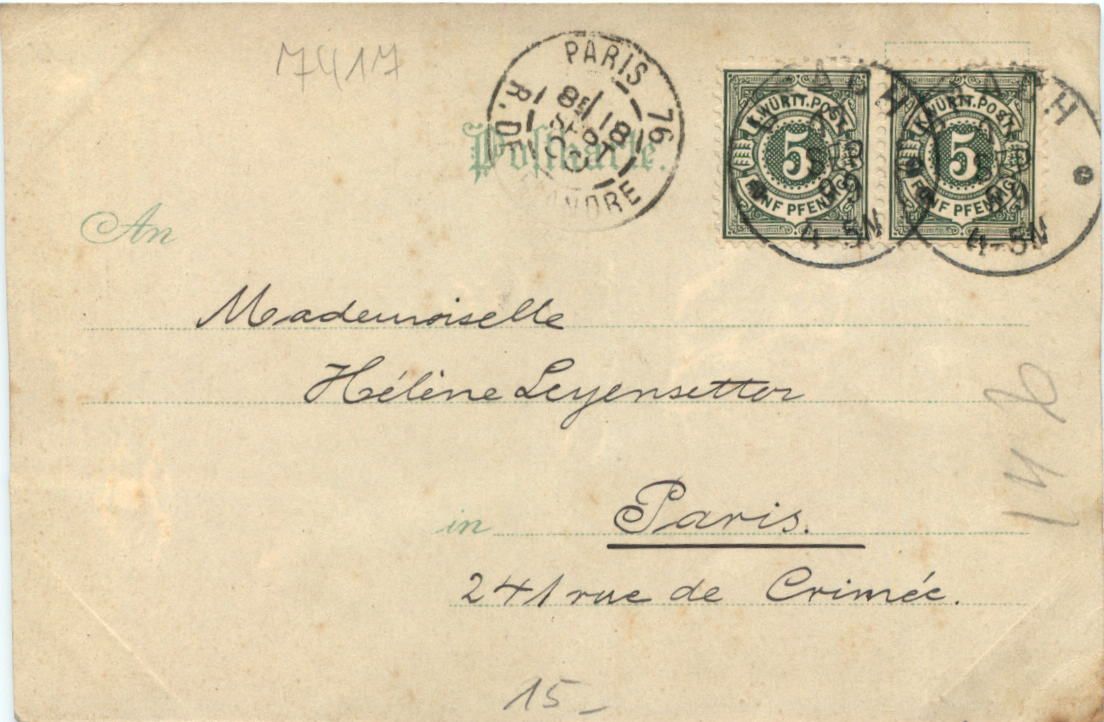 7417
PARIS 76
R. DE
8E 18
SEPT
K.WÜRTT.POST
5
FÜNF PFENNIG
K.WÜRTT.POST
5
FÜNF PFENNIG
SEP
99
4-5N
SEP
99
4-5N
Postkarte.
An
Mademoiselle
Hélène Leyensetter
in Paris.
241 rue de Crimée.
15_